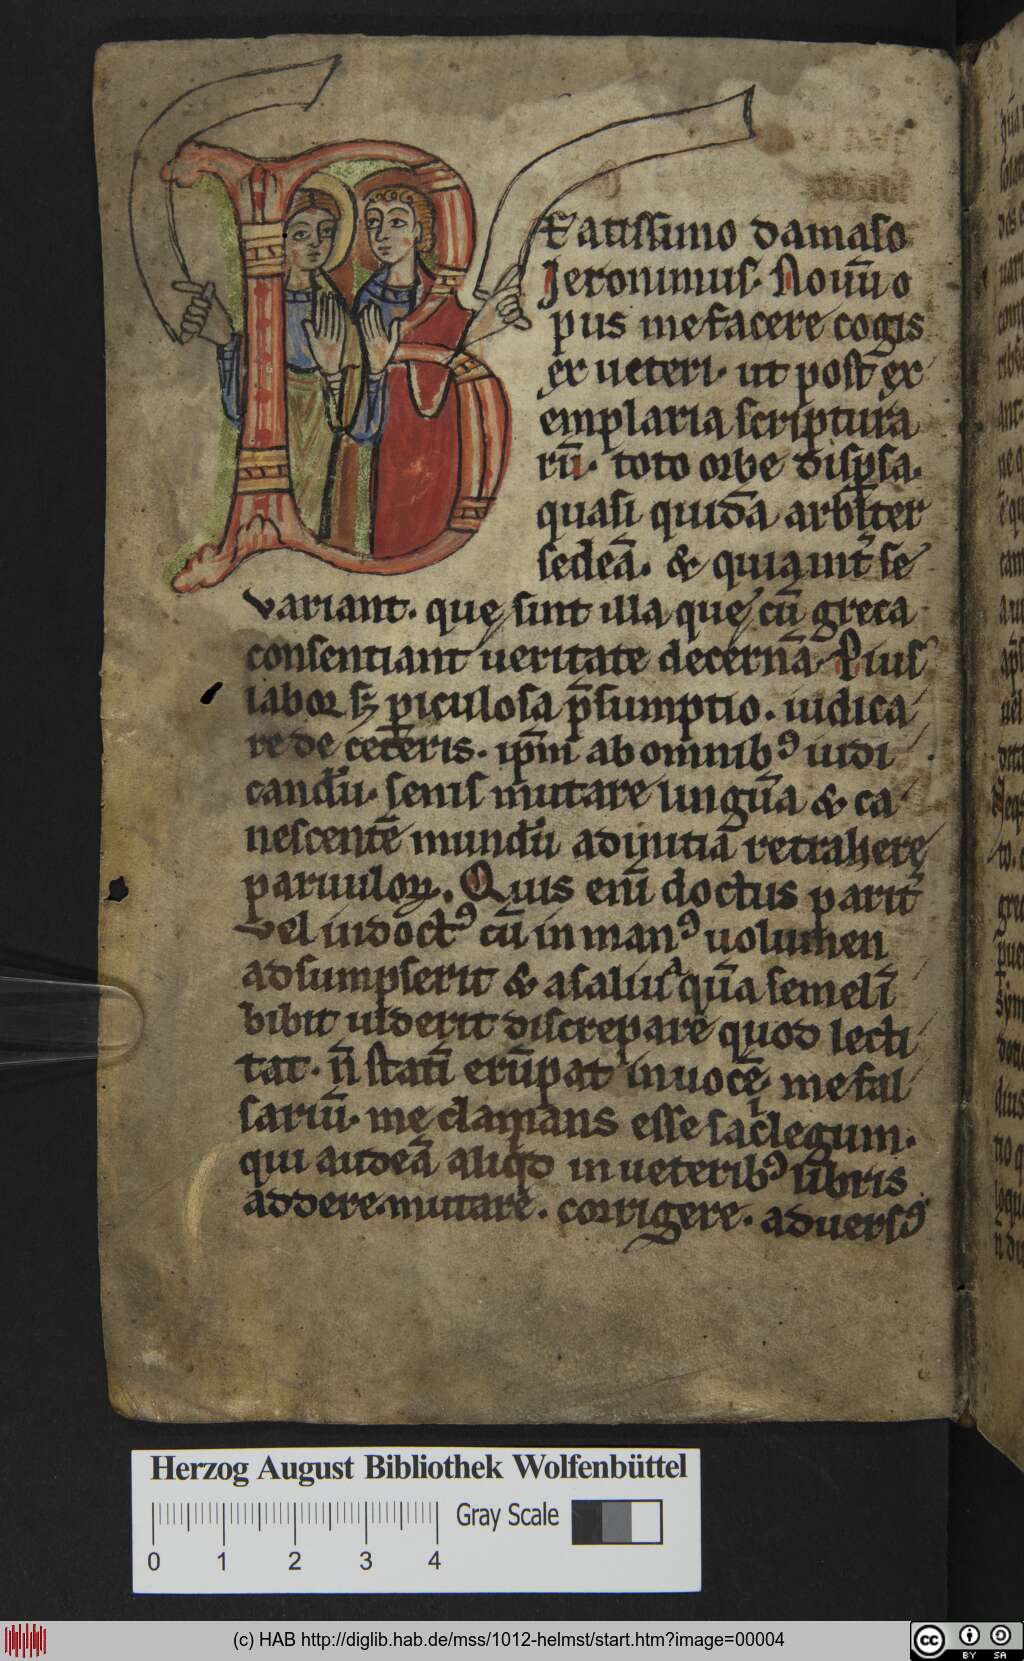 B Eatissimo damaso
Jeronimus. Nouū o
pus me facere cogis
ex ueteri. ut post ex
emplaria scriptura
rū. toto orbe disp̲sa.
quasi quidā arbiter
sedeā. & quia int̄ se
uariant. quę sint illa que cū greca
consentiant ueritate decernā. Pius
labor sꝫ ꝑiculosa p̄sumptio. iudica
re de ceteris. ip̄m ab omnibꝰ iudi
candū. senis mutare linguā & ca
nescentē mundū ad initiā retraherę
paruuloꝝ. Quis enī doctus parit̄
vel indoctꝰ cū in manꝰ uolumen
adsumpserit & a saliua quā semel ī
bibit uiderit discrepare quod lecti
tat. n̄ statī erūpat in uocē. me fal
sariū. me clamans esse sacⁱlegum.
qui audeā aliqd in ueteribꝰ libris
addere. mutare. corrigere. aduersꝰ
Herzog August Bibliothek Wolfenbüttel
Gray Scale
0 1 2 3 4
(c) HAB http://diglib.hab.de/mss/1012-helmst/start.htm?image=00004
cc BY SA